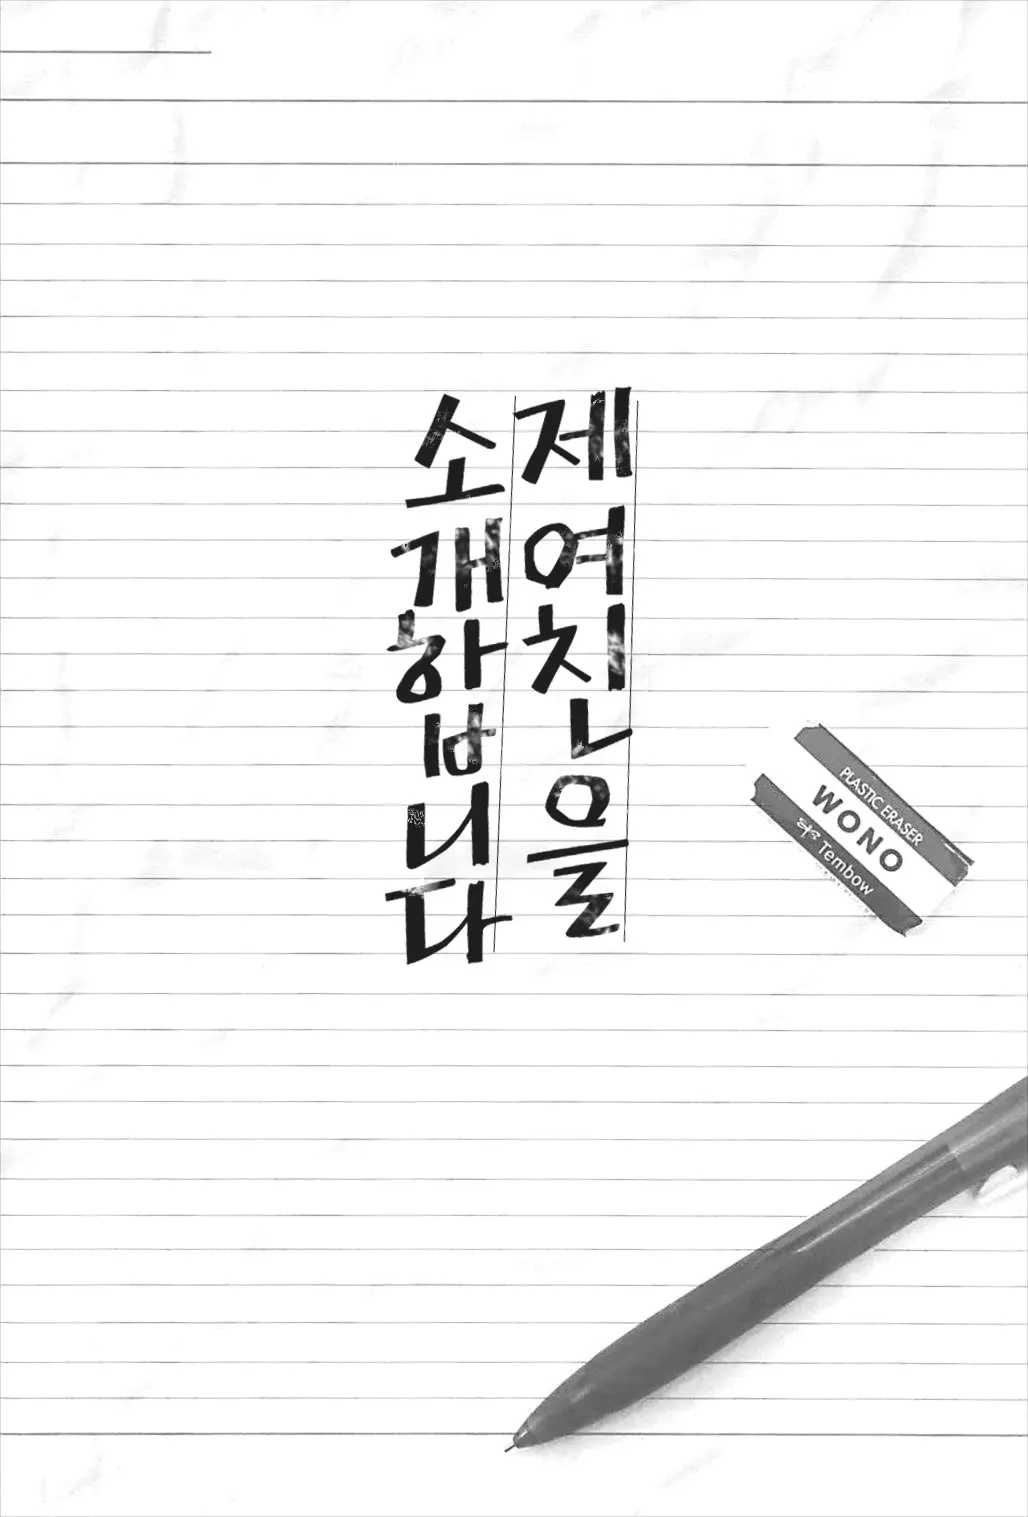 제여친을
소개합니다
PLASTIC ERASER
WONO
Tembow